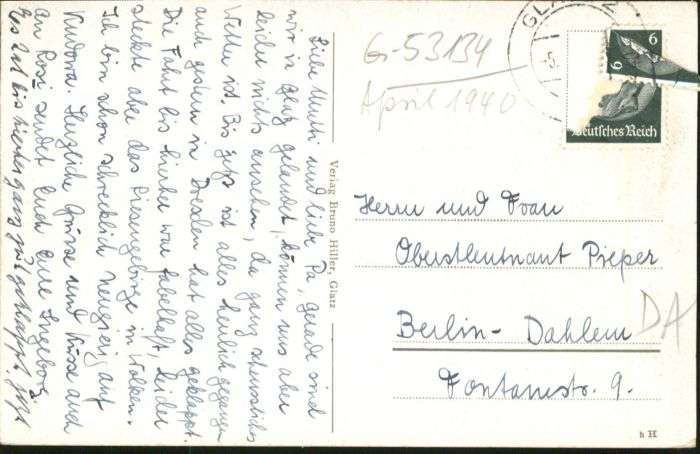 Liebe Mutti und liebe Pa, gerade sind
wir in Glatz gelandet, können uns aber
leider nichts ansehen, da ganz scheussliches
Wetter ist. Bis jetzt ist alles herrlich gegangen
auch gestern in Dresden hat alles geklappt.
Die Fahrt bis hierher war fabelhaft, leider
steckte aber das Riesengebirge in Wolken.
Ich bin schon schrecklich neugierig auf
Kudowa. Herzliche Grüsse und Küsse auch
an Rosi sendet Euch Eure Ingeborg
Es hat bis hierher ganz gut geklappt. Jetzt
Verlag Bruno Hiller, Glatz
G-53134
April 1940
GLA
6
6
Deutsches Reich
Herrn und Frau
Oberstleutnant Pieper
Berlin-Dahlem
DA
Fontanestr. 9.
h H